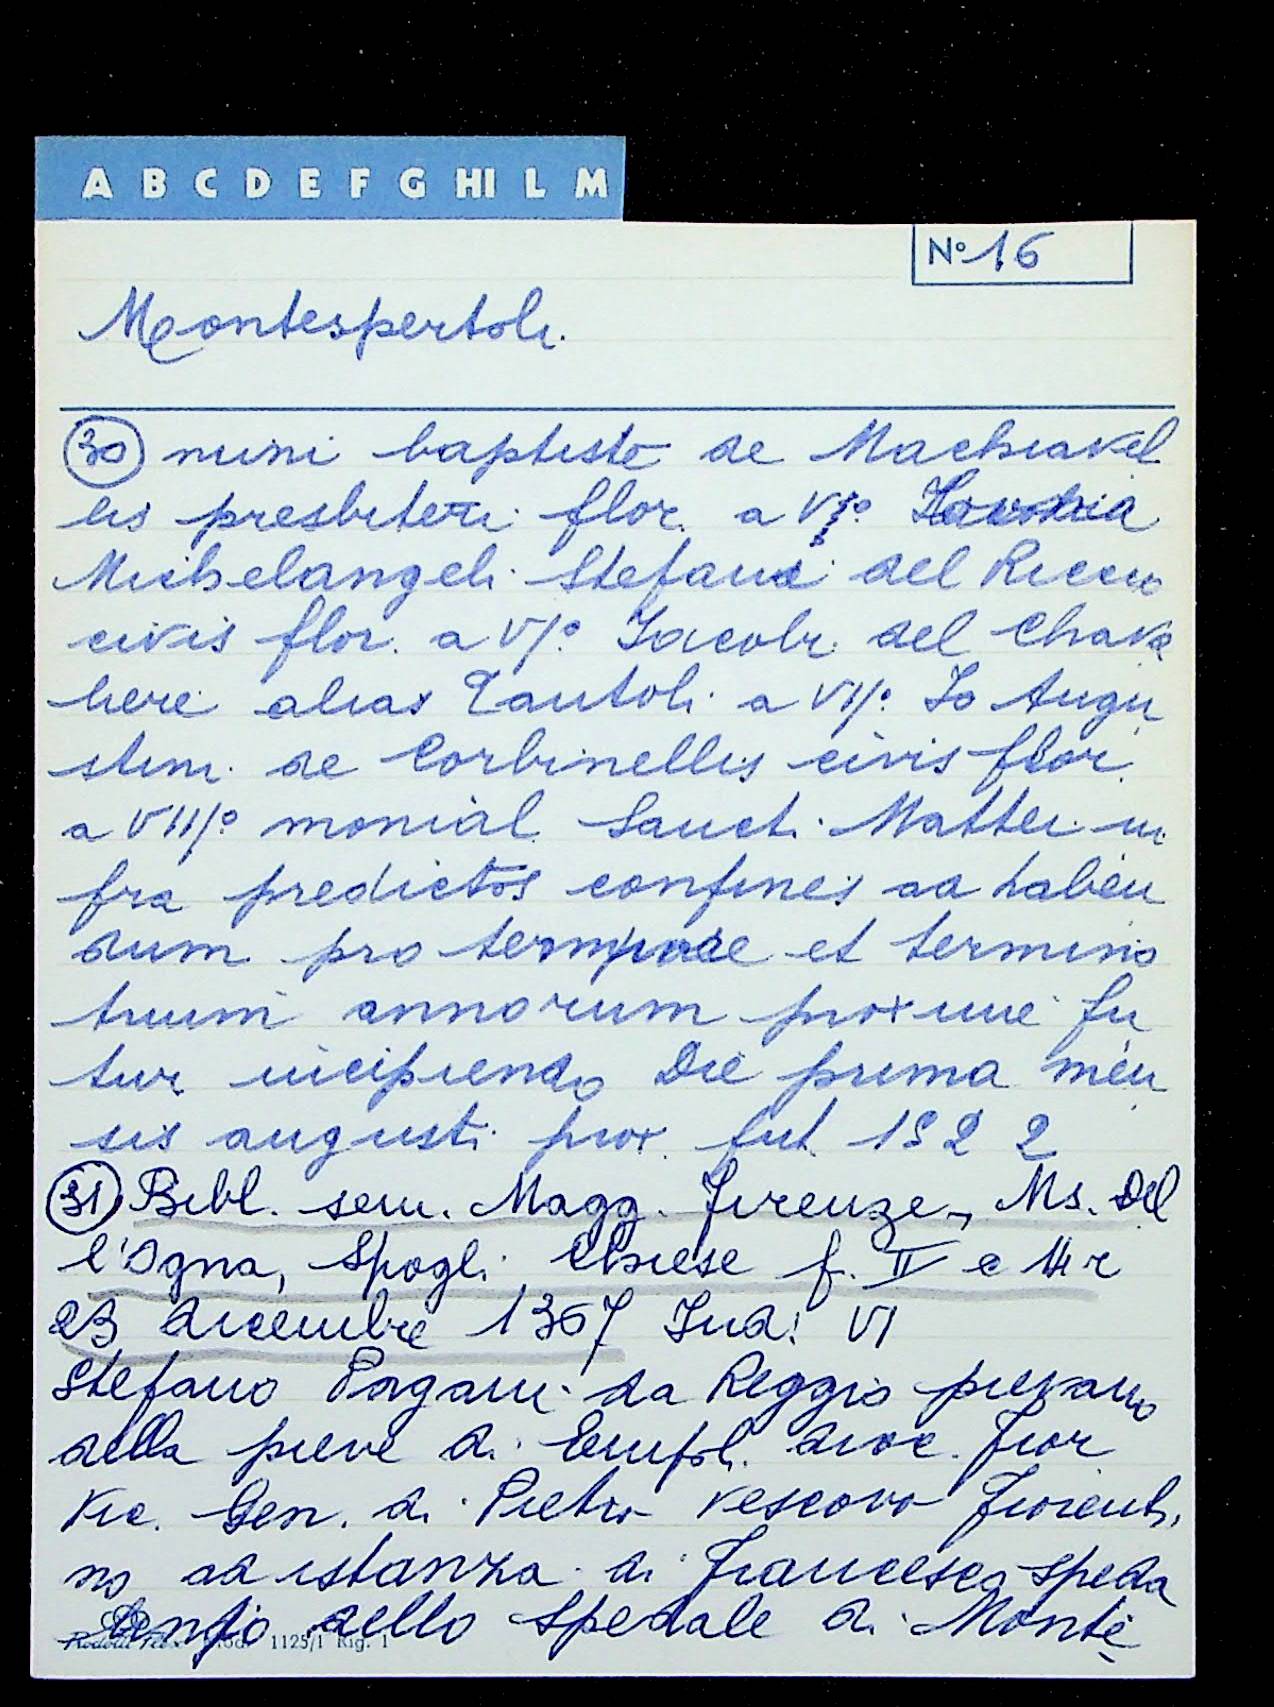 A B C D E F G HI L M
N° 16
Montespertoli.
30 nuni baptiste de Machiavel
lis presbiteri flor. a V°
Michelangeli Stefani del Riccio
civis flor. a V/° Jacobi del Chava
liere alias Tantoli a VII/° Jo Augu
stini de Corbinellis civis flor.
a VIII/° monial Sancti Mattei in
fra predictos confines ad haben
dum pro tempore et termino
trium annorum proxime fu
tur. incipiendo Die prima men
sis augusti prox. fut. 1522
31 Bibl. sem. Magg. Firenze, Ms. Del
l'Ogna, Spogli Chiese f. II c
23 dicembre 1367 Ind. VI
Stefano Pagani da Reggio pievano
della pieve di Empoli dioc. Fior
Vic. Gen. di Pietro vescovo Fiorenti
no ad istanza di Francesco speda
lingo dello Spedale di Monte
1125/1 Rig. 1